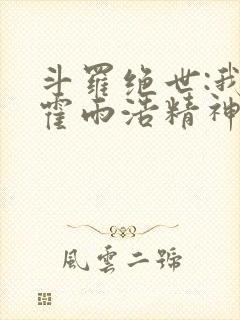 斗羅绝世:我
霍雨浩精神
風雲二號